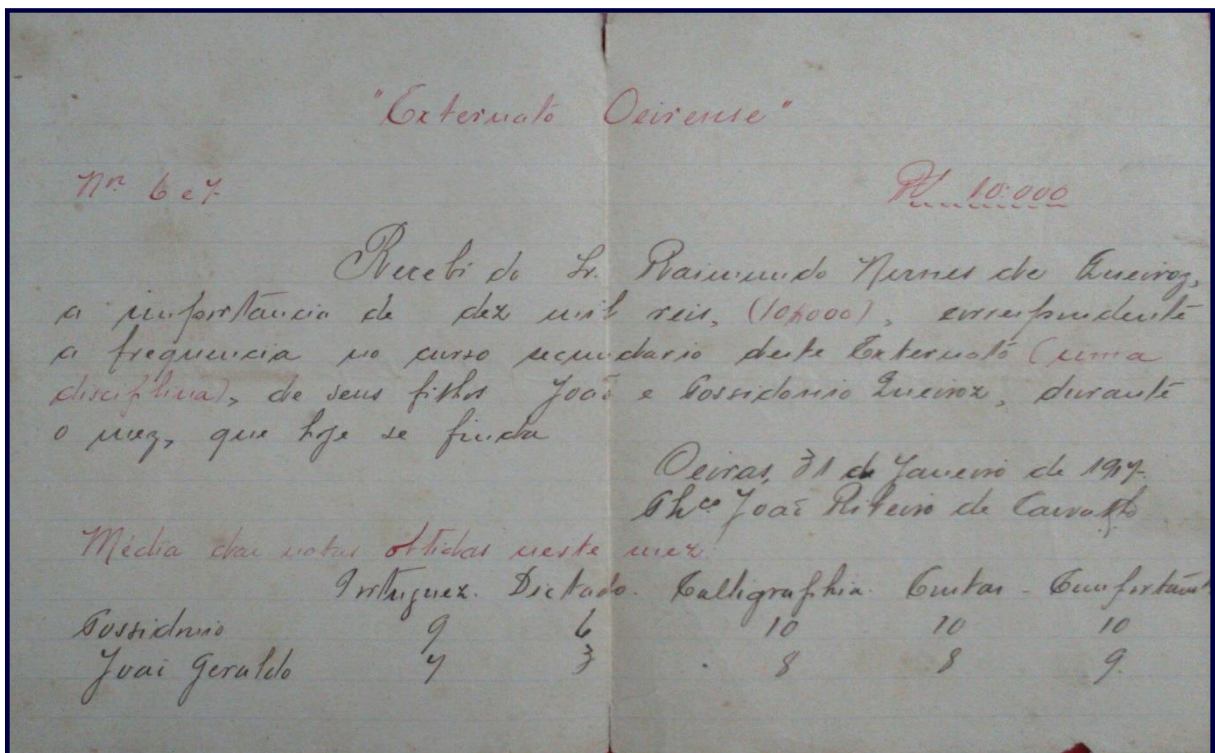 "Externato Oeirense"
Nos 6 e 7 Rs 10:000
Recebi do Sr. Raimundo Nunes de Queiroz,
a importância de dez mil reis, (10$000), correspondente
a frequencia no curso secundario deste Externato (uma
disciplina), de seus filhos João e Possidonio Queiroz, durante
o mez, que hoje se finda
Oeiras, 31 de Janeiro de 1917.
Phco João Ribeiro de Carvalho
Média das notas obtidas neste mez.
Portuguez. Dictado. Calligraphia. Contas - Comportamt.
Possidonio 9 6 10 10 10
João Geraldo 7 3 8 8 9.